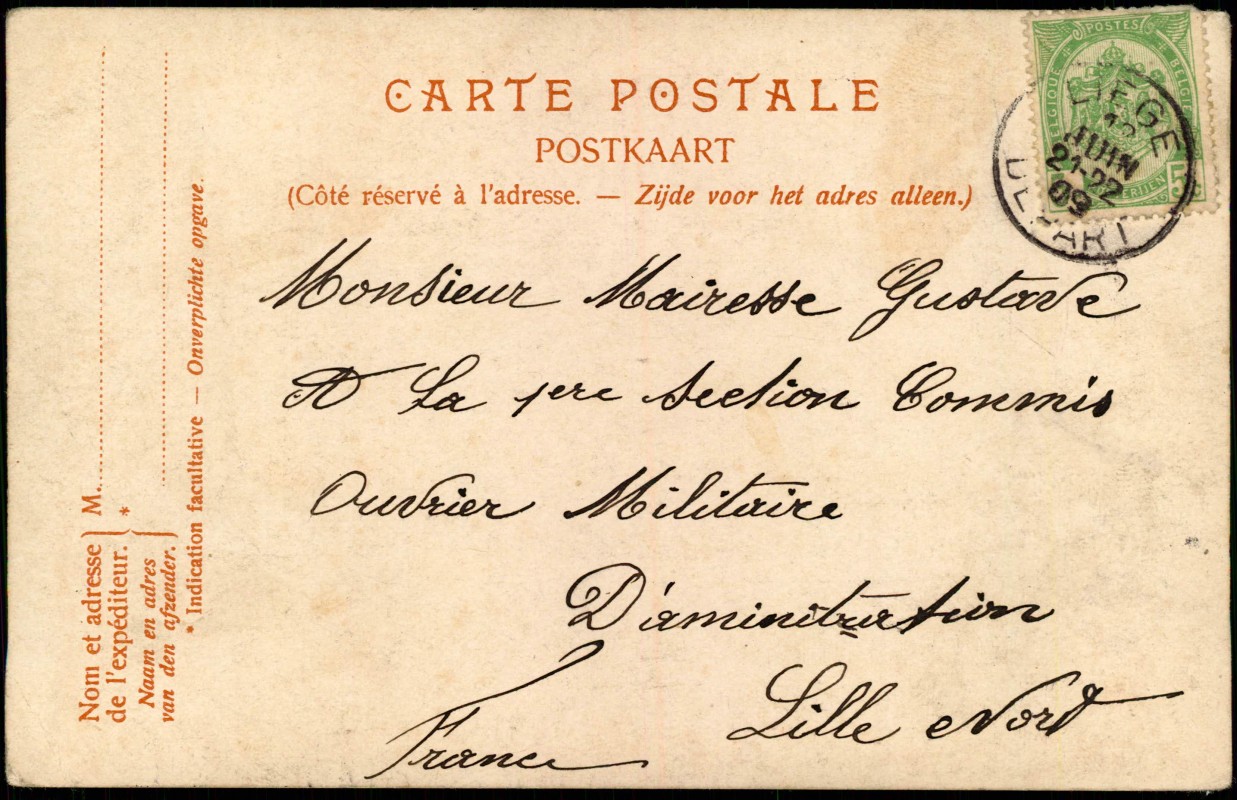 CARTE POSTALE
POSTKAART
(Côté réservé à l'adresse. — Zijde voor het adres alleen.)
POSTES
BELGIQUE
BELGIË
LIEGE
JUIN
21-22
09
DEPART
Monsieur Mairesse Gustave
A La 1ere Section Commis
Ouvrier Militaire
D'aministration
Lille Nord
France
Nom et adresse
de l'expéditeur.
Naam en adres
van den afzender.
M.
*
* Indication facultative — Onverplichte opgave.